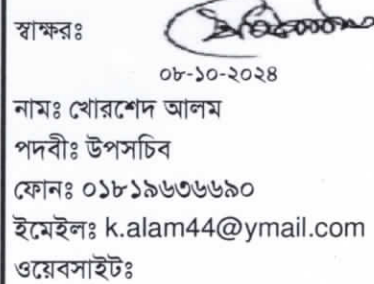 স্বাক্ষরঃ
০৮-১০-২০২৪
নামঃ খোরশেদ আলম
পদবীঃ উপসচিব
ফোনঃ ০১৮১৯৬৩৬৬৯০
ইমেইলঃ k.alam44@ymail.com
ওয়েবসাইটঃ